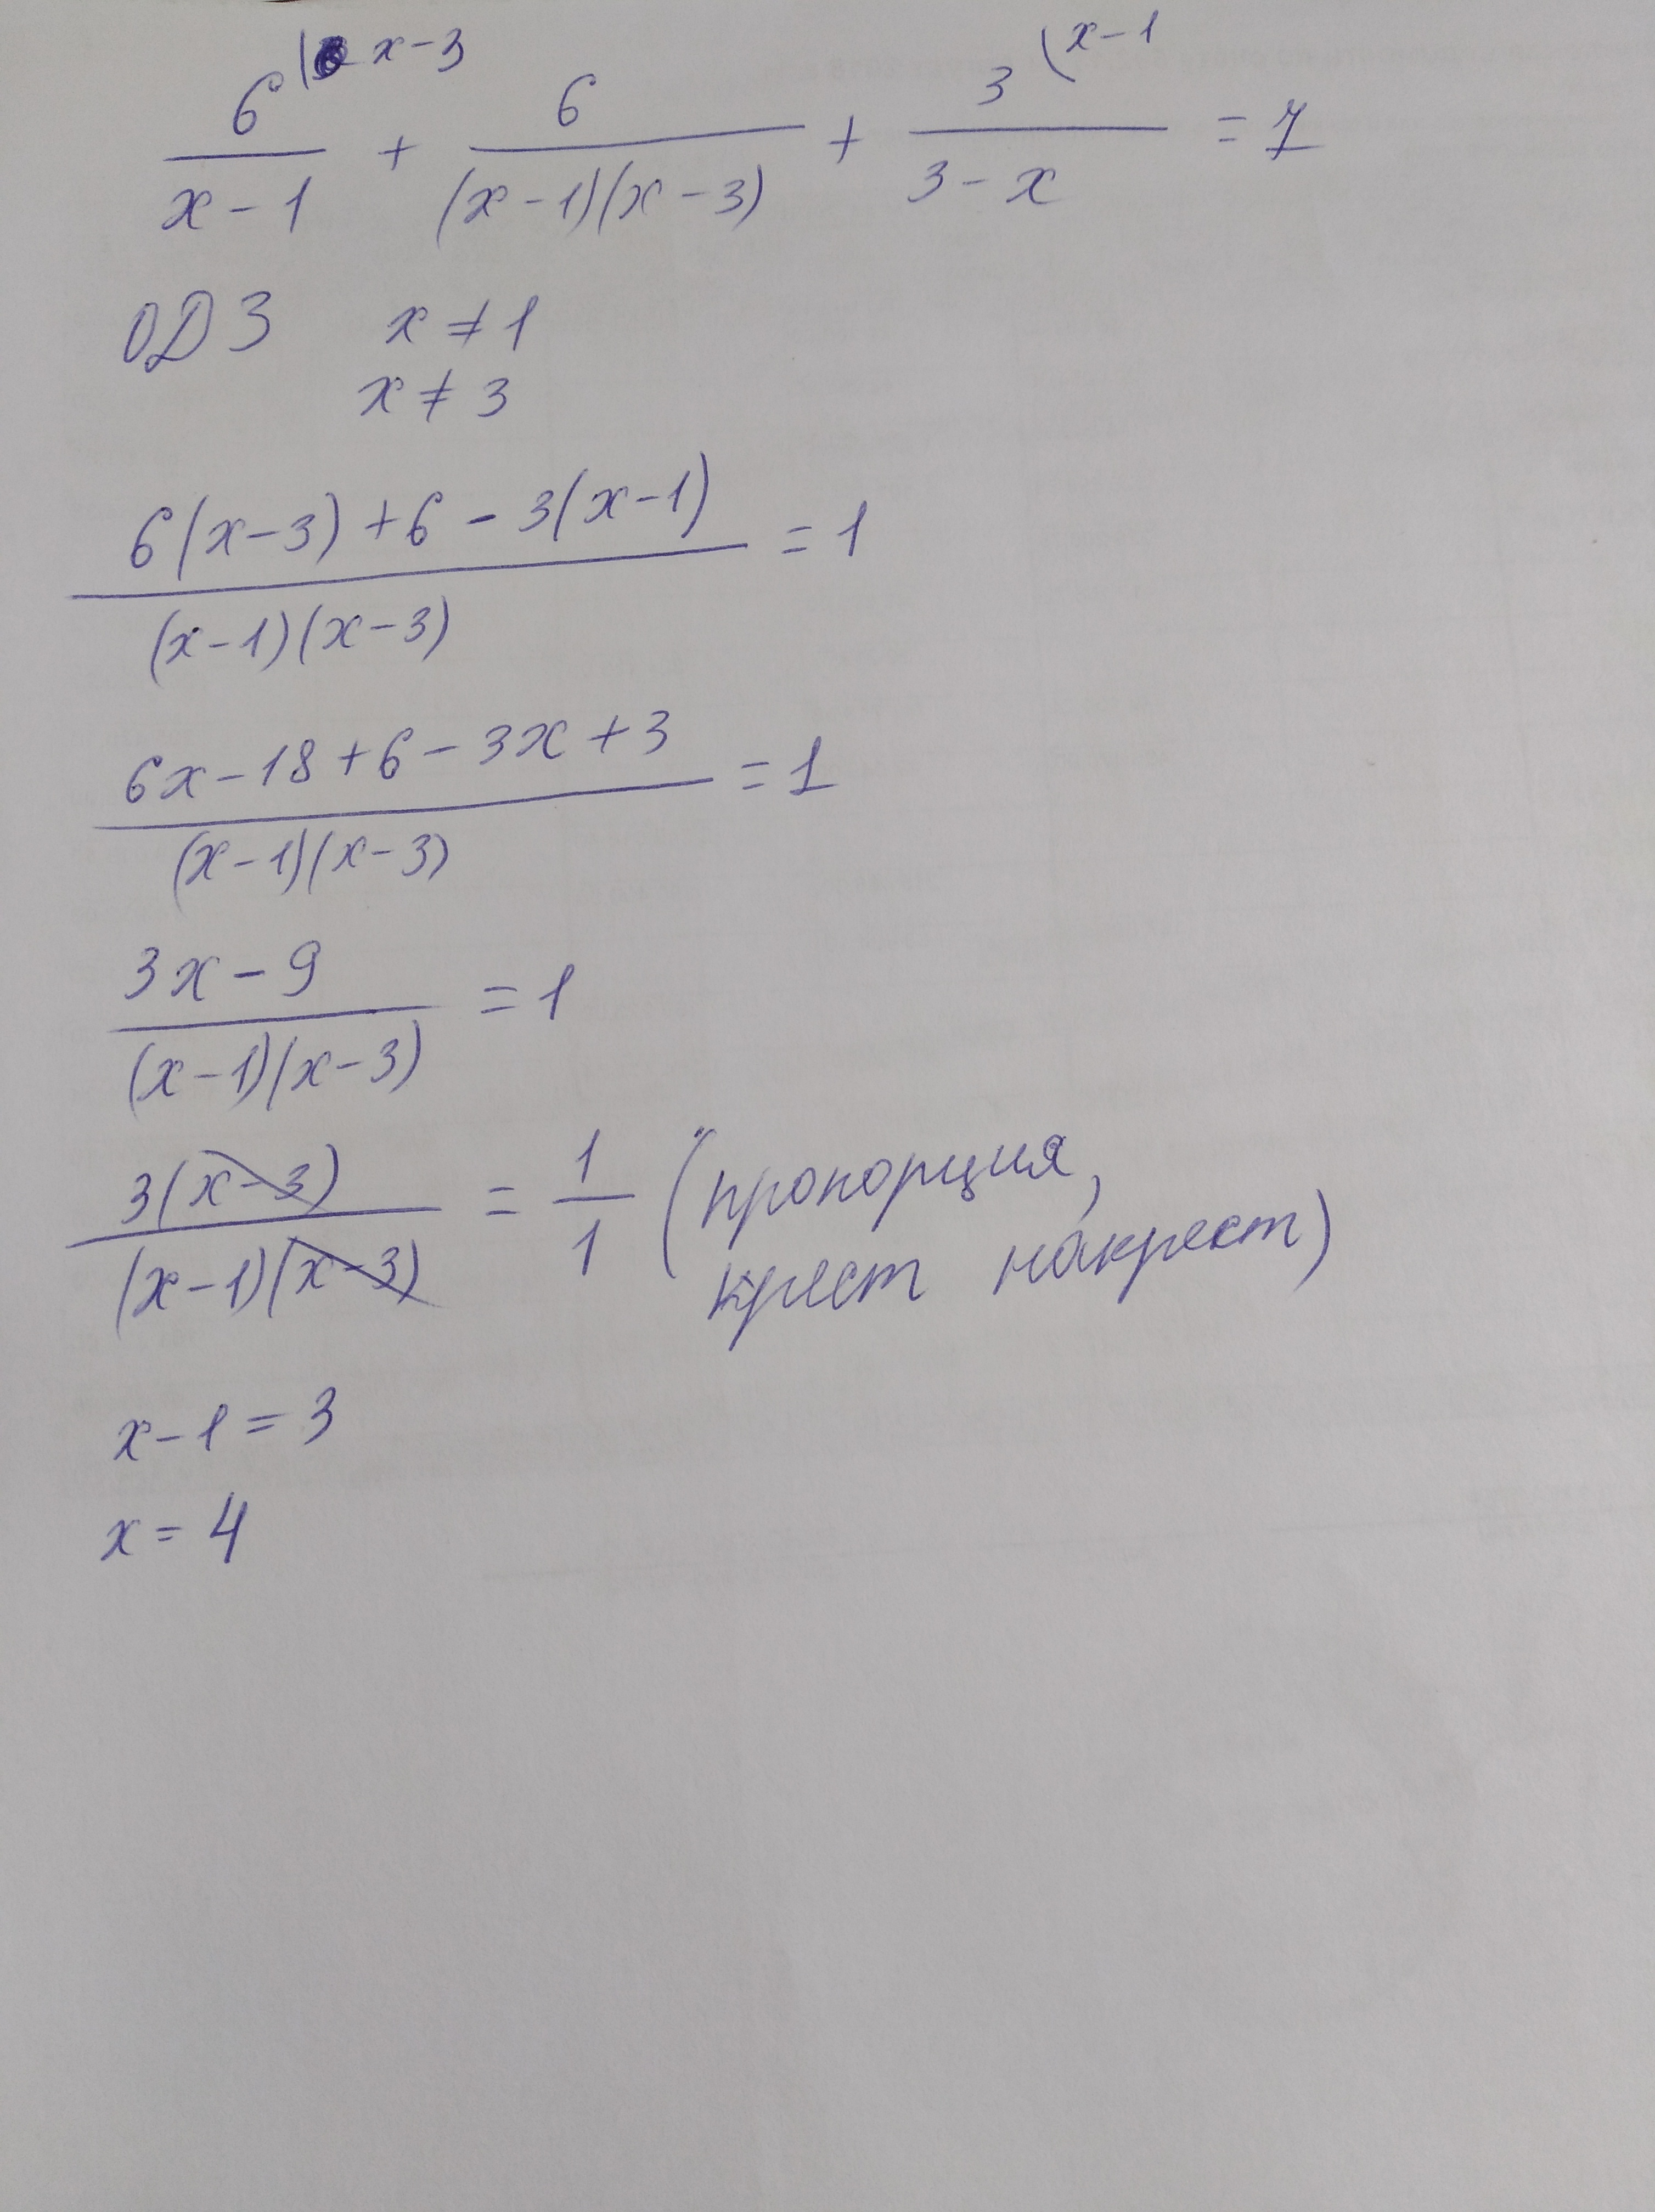 6(x-3
6/(x-1) + 6/((x-1)(x-3)) + 3(x-1/(3-x) = 1
ОДЗ x ≠ 1
x ≠ 3
(6(x-3)+6-3(x-1))/((x-1)(x-3)) = 1
(6x-18+6-3x+3)/((x-1)(x-3)) = 1
(3x-9)/((x-1)(x-3)) = 1
3(x-3)/((x-1)(x-3)) = 1/1 (пропорция,
крест накрест)
x-1=3
x=4